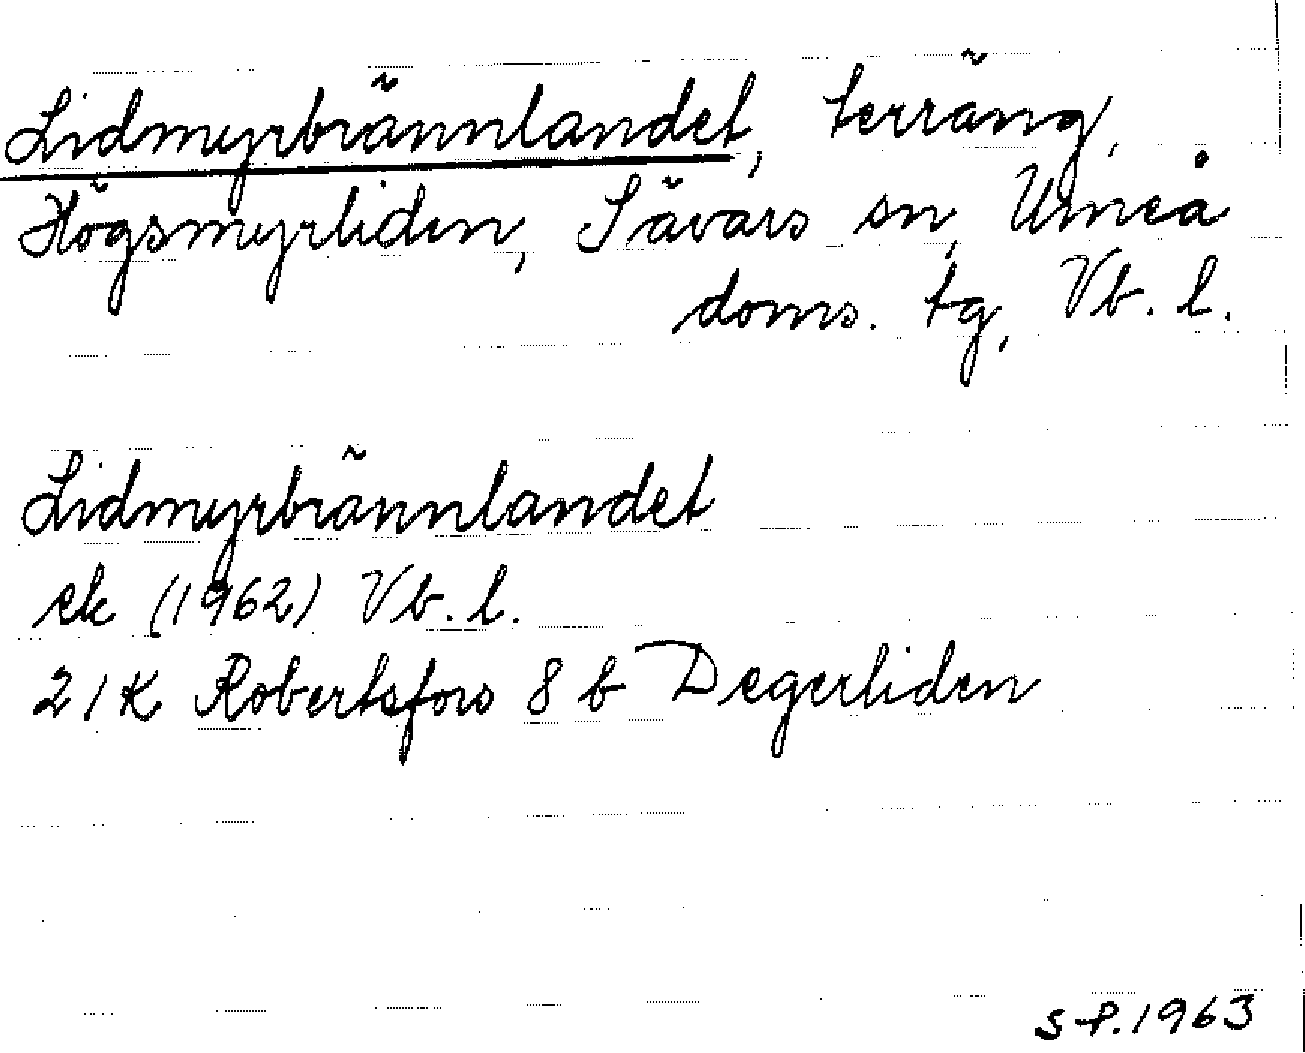 Lidmyrbrännlandet, terräng,
Högsmyrliden, Sävars sn, Umeå
doms. tg, Vb. l.
Lidmyrbrännlandet
ek (1962) Vb. l.
21K Robertsfors 8 b Degerliden
S P. 1963